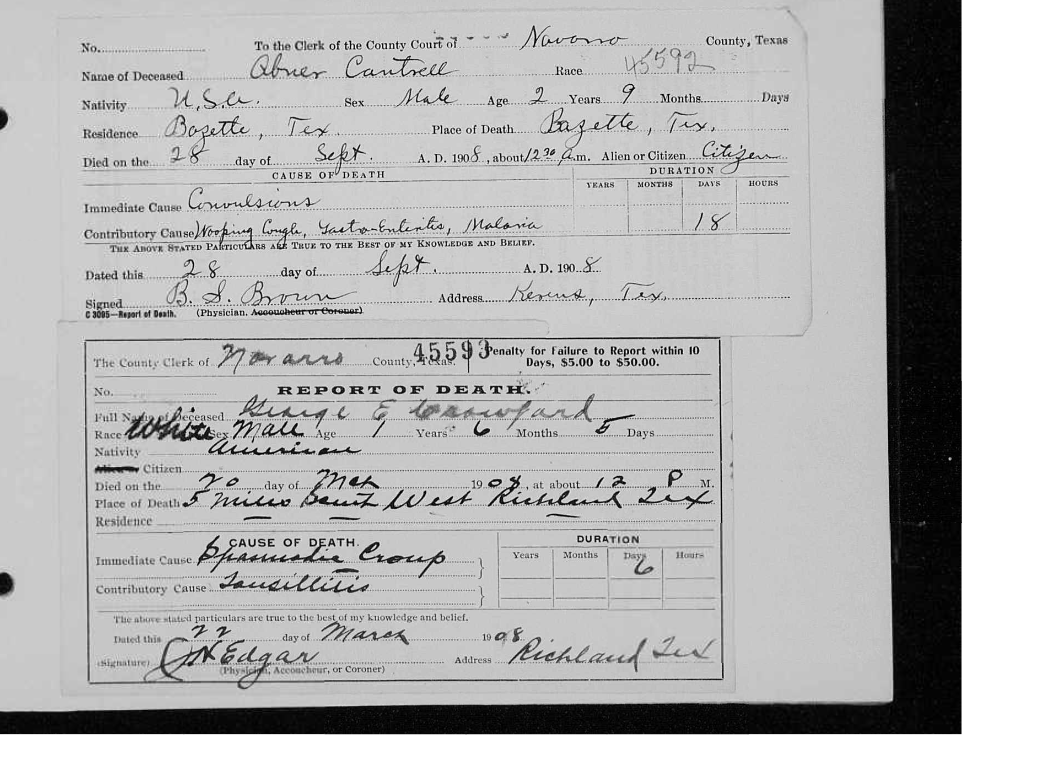 No. To the Clerk of the County Court of Navarro County, Texas
Name of Deceased Abner Cantrell Race 45592
Nativity U.S.A. Sex Male Age 2 Years 9 Months Days
Residence Bazette, Tex. Place of Death Bazette, Tex.
Died on the 28 day of Sept. A. D. 1908, about 12 30 a.m. Alien or Citizen Citizen
CAUSE OF DEATH DURATION
YEARS MONTHS DAYS HOURS
Immediate Cause Convulsions
Contributory Cause Wooping Cough, Gastro-Enteritis, Malaria 18
THE ABOVE STATED PARTICULARS ARE TRUE TO THE BEST OF MY KNOWLEDGE AND BELIEF.
Dated this 28 day of Sept. A. D. 1908.
Signed B. S. Brown Address Kerens, Tex.
C 3095—Report of Death. (Physician, Accoucheur or Coroner)
The County Clerk of Navarro County, Texas. 45593 Penalty for Failure to Report within 10
Days, $5.00 to $50.00.
No. REPORT OF DEATH.
Full Name of Deceased George E Crawford
Race White Sex Male Age 1 Years 6 Months 5 Days
Nativity American
Citizen
Died on the 20 day of Mch 1908, at about 12 P M.
Place of Death 5 Miles West Richland Tex
Residence
CAUSE OF DEATH. DURATION
Years Months Days Hours
Immediate Cause Spasmodic Croup 6
Contributory Cause Tonsillitis
The above stated particulars are true to the best of my knowledge and belief.
Dated this 22 day of March 1908
(Signature) Edgar Address Richland Tex
(Physician, Accoucheur, or Coroner)